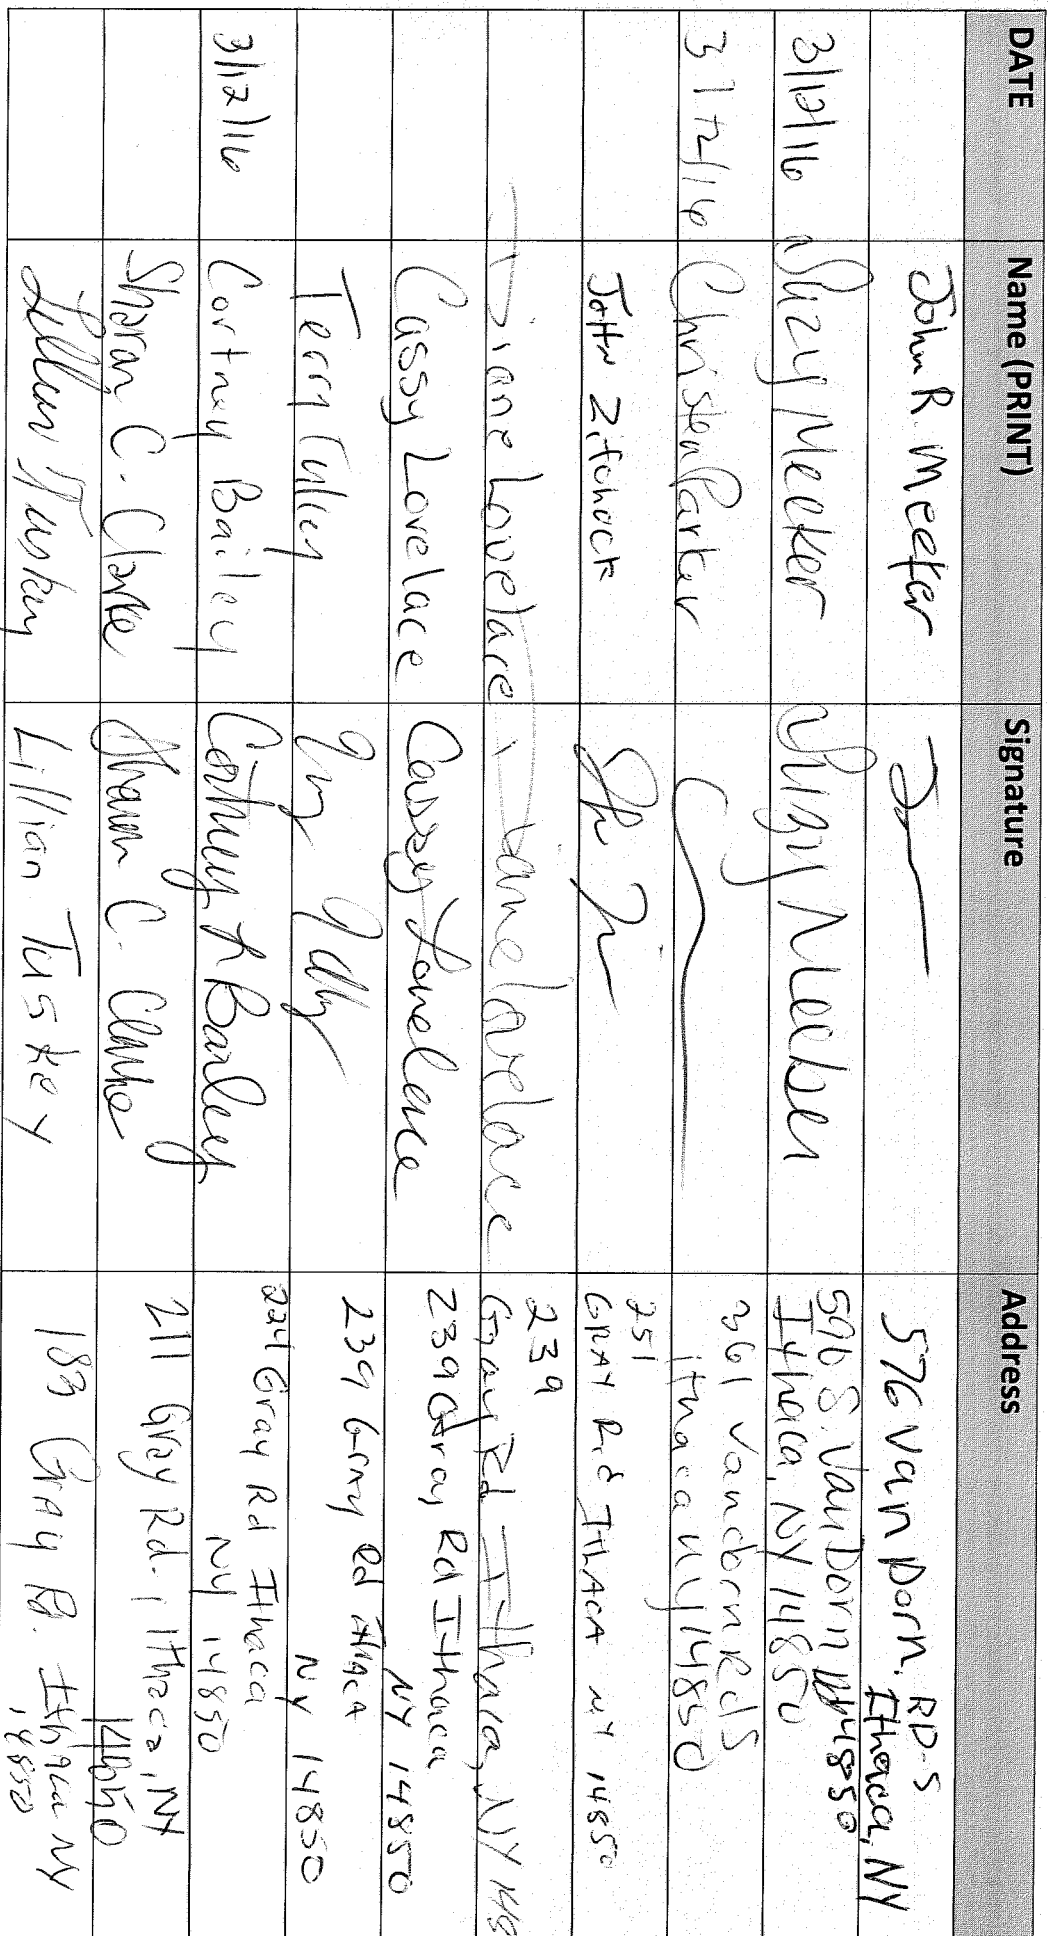 DATE Name (PRINT) Signature Address
John R. Meeker 576 Van Dorn. RD-S
Ithaca, NY
14850
3/12/16 Suzy Meeker Suzy Meeker 576 S. Van Dorn
Ithaca, NY 14850
3/12/16 Christen Parker 361 Vandorn Rd S
ithaca ny 14850
John 251
GRAY Rd ITHACA NY 14850
Diane Lovelace Diane Lovelace 239
Gray Rd Ithaca, NY 148
Cassy Lovelace Cassy Lovelace 239 Gray Rd Ithaca
NY 14850
Terry 239 Gray Rd ITHACA
NY 14850
3/12/16 Cortney Bailey Cortney R Bailey 224 Gray Rd Ithaca
NY 14850
Sharon C. Clarke Sharon C. Clarke 211 Gray Rd. Ithaca, NY
14850
Lillian Tuskey Lillian Tuskey 183 Gray Rd. Ithaca NY
14850